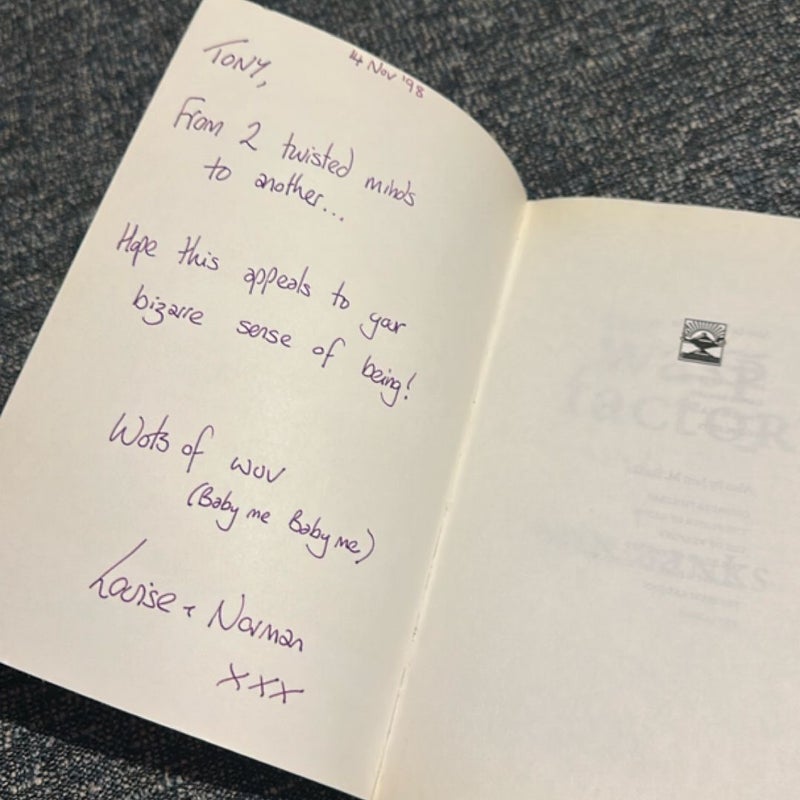 TONY,
14 Nov '98
From 2 twisted minds
to another...
Hope this appeals to your
bizarre sense of being!
Wots of wuv
(Baby me Baby me)
Louise + Norman
xxx
factory